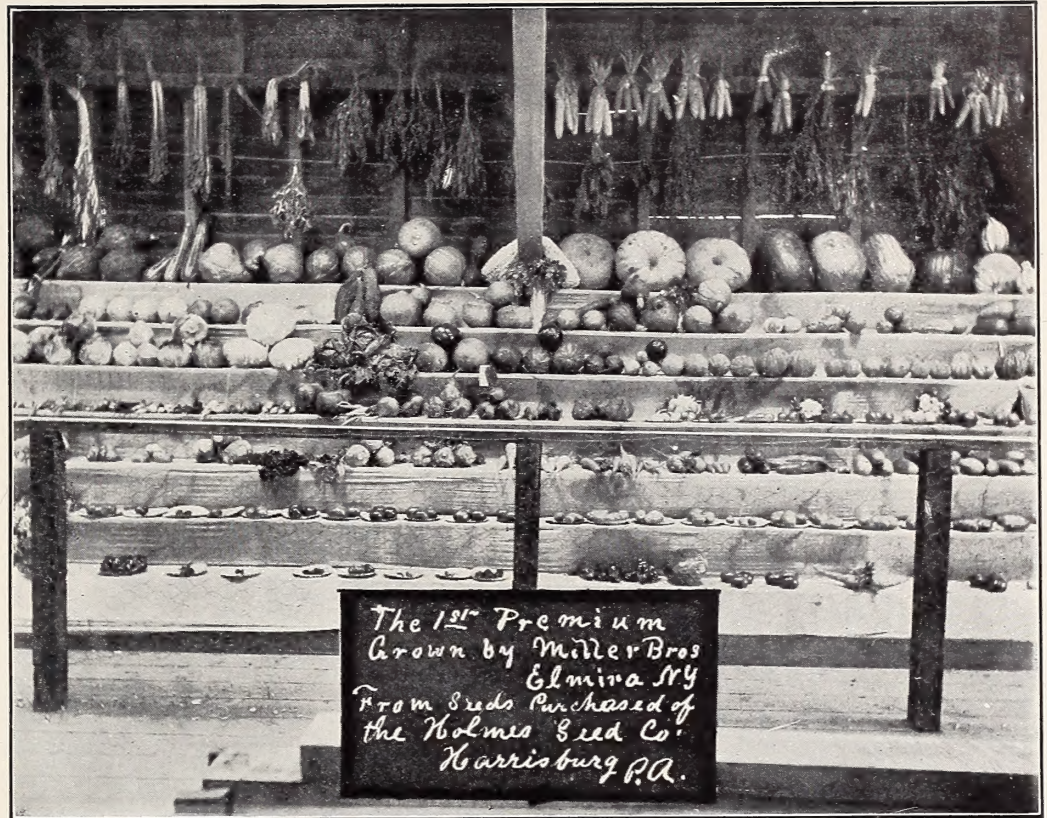 The 1st Premium
Grown by Miller Bros
Elmira NY
From Seeds Purchased of
the Holmes Seed Co.
Harrisburg P.A.